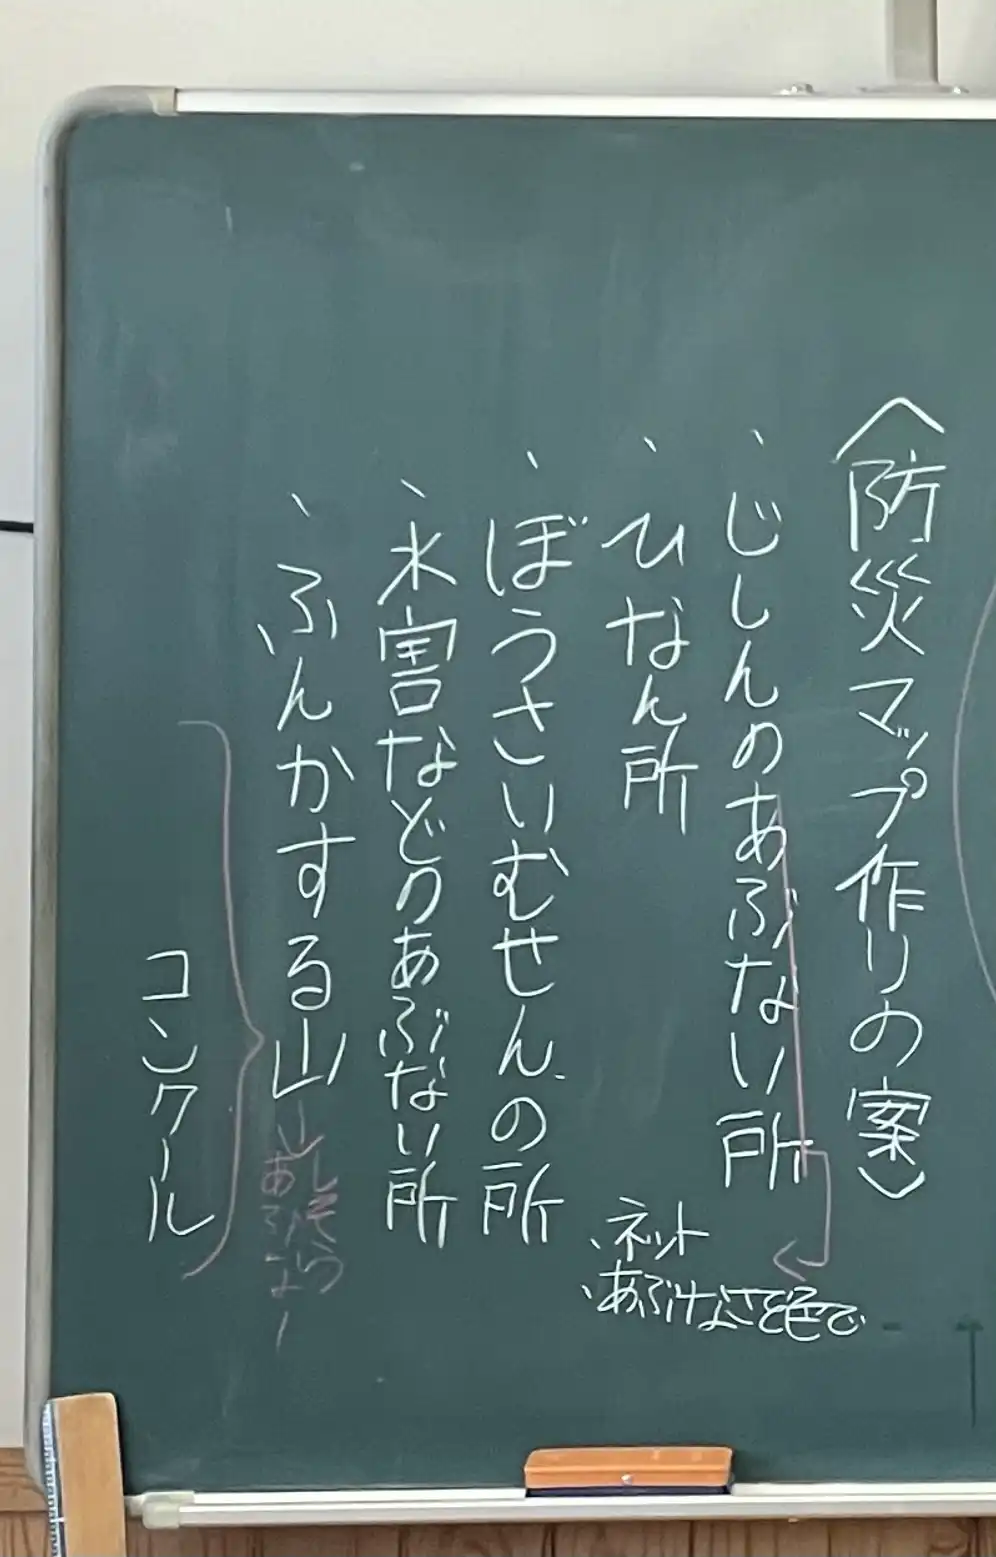 〈防災マップ作りの案〉
、じしんのあぶない所
、ひなん所
、ネット
、あぶなさを色で
、ぼうさいむせんの所
、水害などのあぶない所
、ふんかする山
コンクール